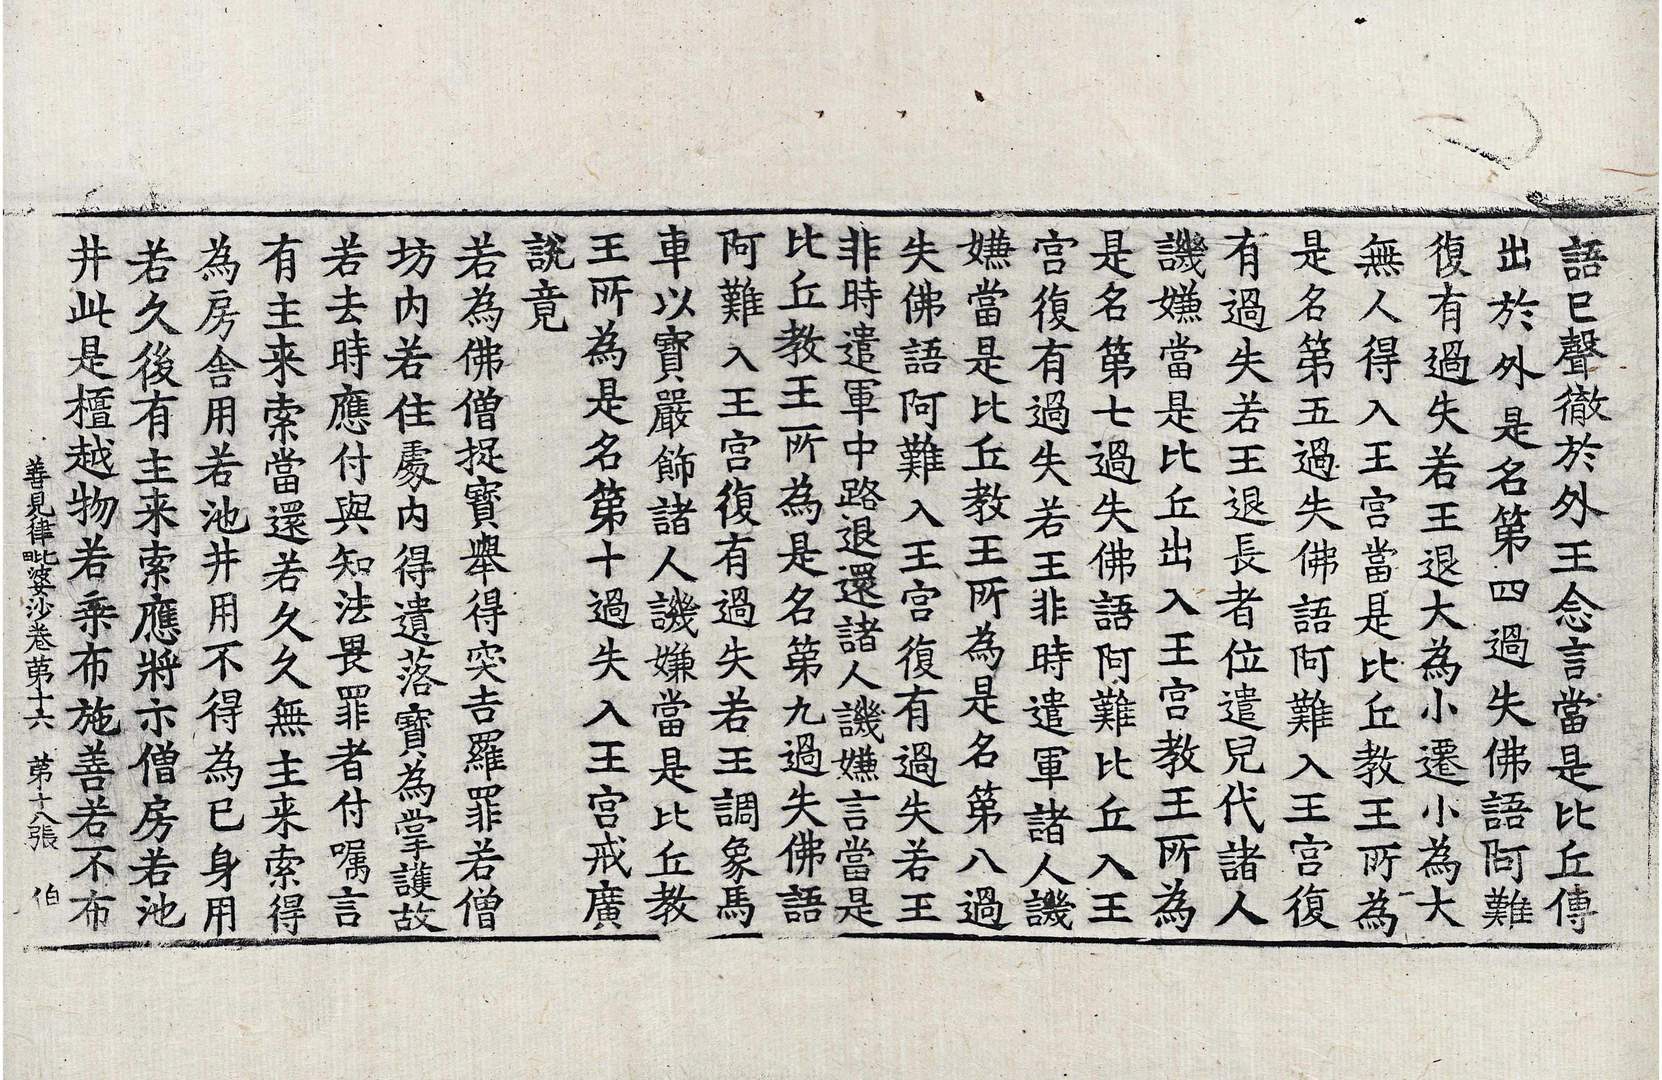 語已聲徹於外王念言當是比丘傳
出於外是名第四過失佛語阿難
復有過失若王退大為小遷小為大
無人得入王宮當是比丘教王所為
是名第五過失佛語阿難入王宮復
有過失若王退長者位遣兒代諸人
譏嫌當是比丘出入王宮教王所為
是名第七過失佛語阿難比丘入王
宮復有過失若王非時遣軍諸人譏
嫌當是比丘教王所為是名第八過
失佛語阿難入王宮復有過失若王
非時遣軍中路退還諸人譏嫌言當是
比丘教王所為是名第九過失佛語
阿難入王宮復有過失若王調象馬
車以寶嚴飾諸人譏嫌當是比丘教
王所為是名第十過失入王宮戒廣
說竟
若為佛僧捉寶舉得突吉羅罪若僧
坊內若住處內得遺落寶為掌護故
若去時應付與知法畏罪者付囑言
有主来索當還若久久無主来索得
為房舍用若池井用不得為已身用
若久後有主来索應將示僧房若池
井此是檀越物若乘布施善若不布
善見律毗婆沙卷第十六 第十八張 伯